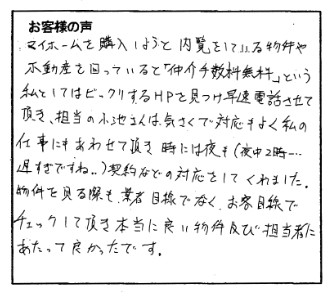 お客様の声
マイホームを購入しようと内覧をしている物件や
不動産を回っていると「仲介手数料無料」という
私としてはビックリするHPを見つけ早速電話させて
頂き、担当の小池さんは、気さくで対応もよく私の
仕事にもあわせて頂き時には夜も(夜中2時…
遅すぎですね..)契約などの対応をしてくれました。
物件を見る際も、業者目線でなく、お客目線で
チェックして頂き本当に良い物件及び担当者に
あたって良かったです。